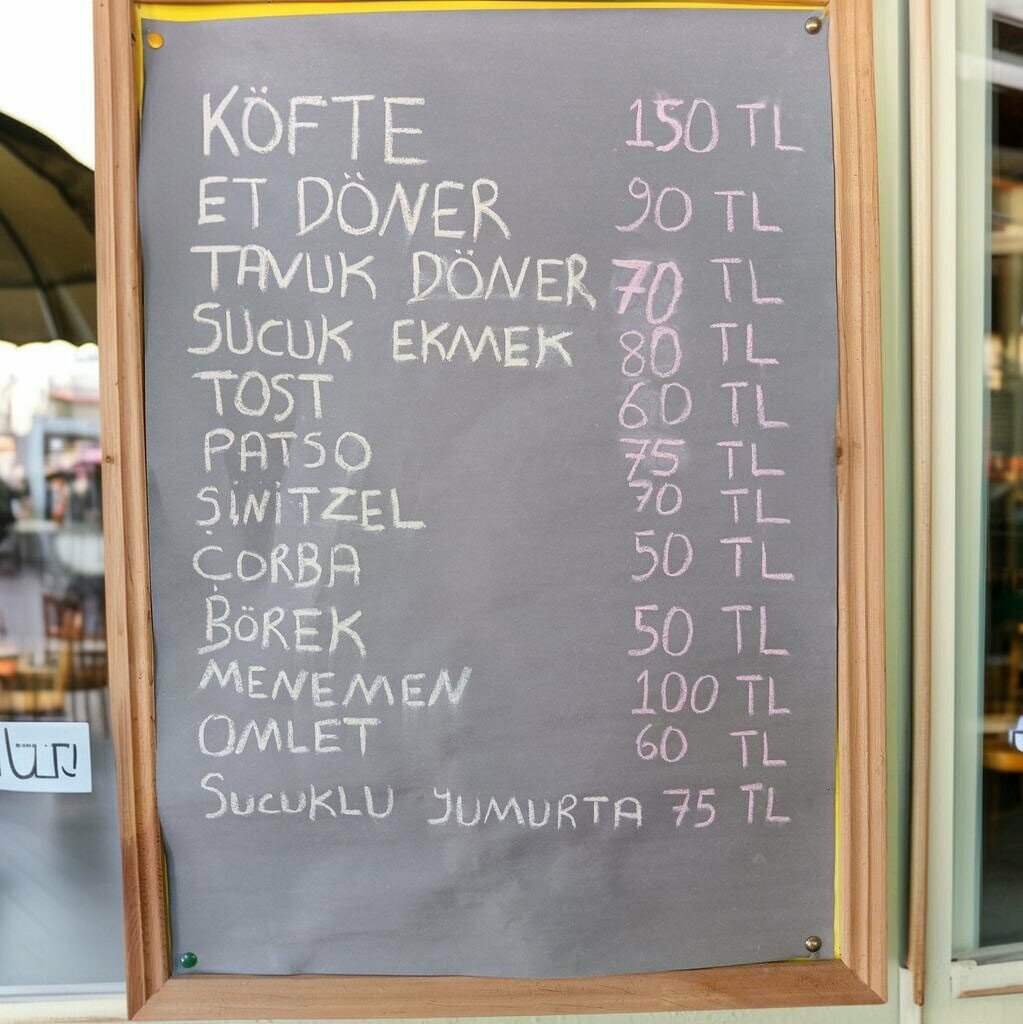 KÖFTE 150 TL
ET DÖNER 90 TL
TAVUK DÖNER 70 TL
SUCUK EKMEK 80 TL
TOST 60 TL
PATSO 75 TL
ŞİNİTZEL 70 TL
ÇORBA 50 TL
BÖREK 50 TL
MENEMEN 100 TL
OMLET 60 TL
SUCUKLU YUMURTA 75 TL